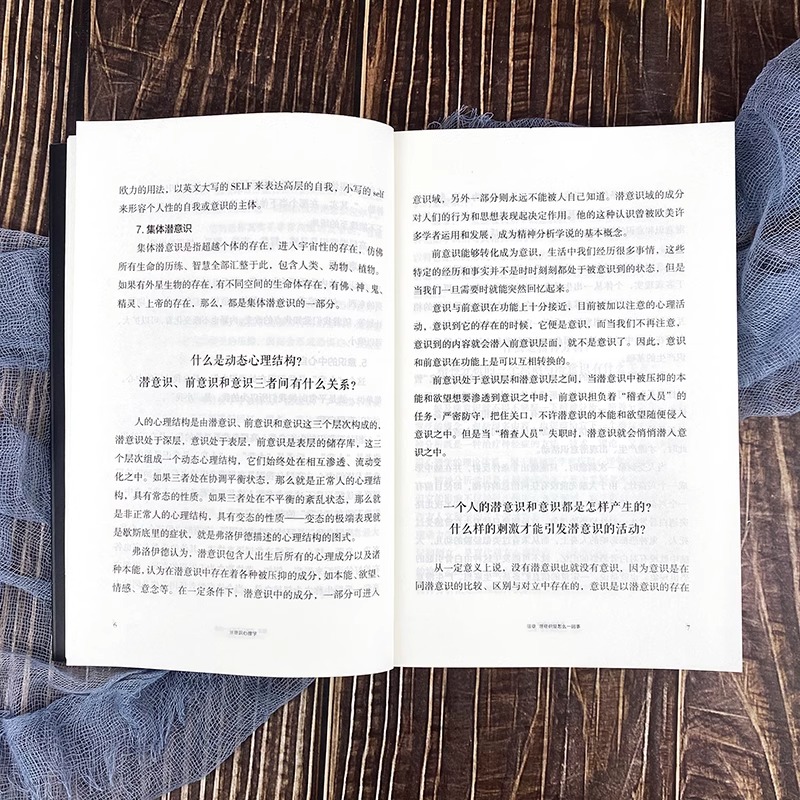 欧力的用法，以英文大写的 SELF 来表达高层的自我，小写的 self
来形容个人性的自我或意识的主体。
7. 集体潜意识
集体潜意识是指超越个体的存在，进入宇宙性的存在，仿佛
所有生命的历练、智慧全部汇整于此，包含人类、动物、植物。
如果有外星生物的存在，有不同空间的生命体存在，有佛、神、鬼、
精灵、上帝的存在，那么，都是集体潜意识的一部分。
什么是动态心理结构？
潜意识、前意识和意识三者间有什么关系？
人的心理结构是由潜意识、前意识和意识这三个层次构成的，
潜意识处于深层，意识处于表层，前意识是表层的储存库，这三
个层次组成一个动态心理结构，它们始终处在相互渗透、流动变
化之中。如果三者处在协调平衡状态，那么就是正常人的心理结
构，具有常态的性质。如果三者处在不平衡的紊乱状态，那么就
是非正常人的心理结构，具有变态的性质——变态的极端表现就
是歇斯底里的症状，就是弗洛伊德描述的心理结构的图式。
弗洛伊德认为，潜意识包含人出生后所有的心理成分以及诸
种本能，认为在潜意识中存在着各种被压抑的成分，如本能、欲望、
情感、意念等。在一定条件下，潜意识中的成分，一部分可进入
6
潜意识心理学
意识域，另外一部分则永远不能被人自己知道。潜意识域的成分
对人们的行为和思想表现起决定作用。他的这种认识曾被欧美许
多学者运用和发展，成为精神分析学说的基本概念。
前意识能够转化成为意识，生活中我们经历很多事情，这些
特定的经历和事实并不是时时刻刻都处于被意识到的状态，但是
当我们一旦需要时就能突然回忆起来。
意识与前意识在功能上十分接近，目前被加以注意的心理活
动，意识到它的存在的时候，它便是意识，而当我们不再注意，
意识到的内容就会潜入前意识层面，就不是意识了。因此，意识
和前意识在功能上是可以互相转换的。
前意识处于意识层和潜意识层之间，当潜意识中被压抑的本
能和欲望想要渗透到意识之中时，前意识担负着“稽查人员”的
任务，严密防守，把住关口，不许潜意识的本能和欲望随便侵入
意识之中。但是当“稽查人员”失职时，潜意识就会悄悄潜入意
识之中。
一个人的潜意识和意识都是怎样产生的？
什么样的刺激才能引发潜意识的活动？
从一定意义上说，没有潜意识也就没有意识，因为意识是在
同潜意识的比较、区别与对立中存在的，意识是以潜意识的存在
潜意识是怎么一回事
7